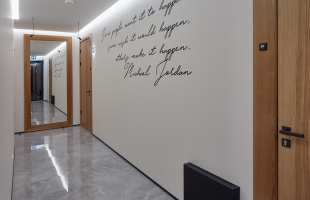 Some people want it to happen,
some wish it would happen,
others make it happen.
Michael Jordan